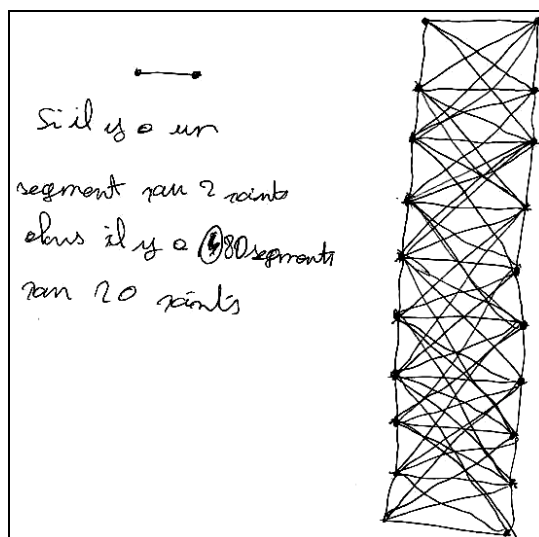 Si il y a un
segment par 2 points
alors il y a 80 segments
par 20 points